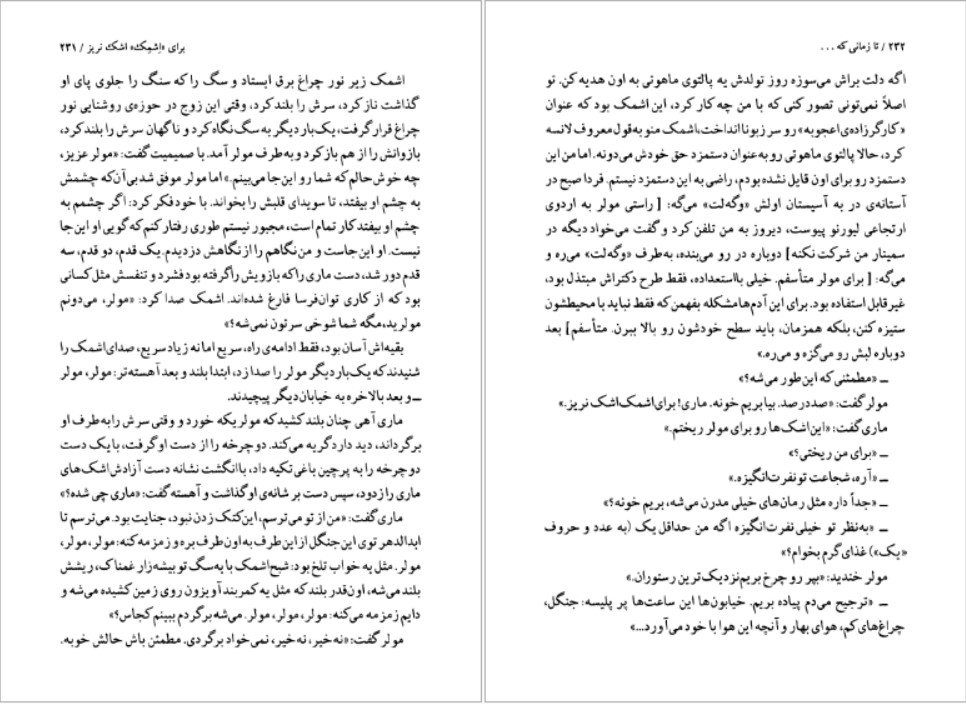 برای «اِشمِک» اشک نریز / ۲۳۱
اشمک زیر نور چراغ برق ایستاد و سگ را که سنگ را جلوی پای او
گذاشت ناز کرد، سرش را بلند کرد، وقتی این زوج در حوزه‌ی روشنایی نور
چراغ قرار گرفت، یک‌بار دیگر به سگ نگاه کرد و ناگهان سرش را بلند کرد،
بازوانش را از هم باز کرد و به‌طرف مولر آمد. با صمیمیت گفت: «مولر عزیز،
چه خوش‌حالم که شما رو این‌جا می‌بینم.» اما مولر موفق شد بی‌آن‌که چشمش
به چشم او بیفتد، تا سویدای قلبش را بخواند. با خود فکر کرد: اگر چشمم به
چشم او بیفتد کار تمام است، مجبور نیستم طوری رفتار کنم که گویی او این‌جا
نیست. او این‌جاست و من نگاهم را از نگاهش دزدیدم. یک قدم، دو قدم، سه
قدم دور شد، دست ماری را که بازویش را گرفته بود فشرد و تنفسش مثل کسانی
بود که از کاری توان‌فرسا فارغ شده‌اند. اشمک صدا کرد: «مولر، می‌دونم
مولرید، مگه شما شوخی سرتون نمی‌شه؟»
بقیه‌اش آسان بود، فقط ادامه‌ی راه، سریع اما نه زیاد سریع، صدای اشمک را
شنیدند که یک‌بار دیگر مولر را صدا زد، ابتدا بلند و بعد آهسته‌تر: مولر، مولر
ــ و بعد بالاخره به خیابان دیگر پیچیدند.
ماری آهی چنان بلند کشید که مولر یکه خورد و وقتی سرش را به‌طرف او
برگرداند، دید دارد گریه می‌کند. دوچرخه را از دست او گرفت، با یک دست
دوچرخه را به پرچین باغی تکیه داد، با انگشت نشانه دست آزادش اشک‌های
ماری را زدود، سپس دست بر شانه‌ی او گذاشت و آهسته گفت: «ماری چی شده؟»
ماری گفت: «من از تو می‌ترسم، این کتک زدن نبود، جنایت بود. می‌ترسم تا
ابدالدهر توی این جنگل از این طرف به اون طرف بره و زمزمه کنه: مولر، مولر،
مولر. مثل یه خواب تلخ بود: شبح اشمک با یه سگ تو بیشه‌زار غمناک، ریشش
بلند می‌شه، اون‌قدر بلند که مثل یه کمربند آویزون روی زمین کشیده می‌شه و
دایم زمزمه می‌کنه: مولر، مولر، مولر. می‌شه برگردم ببینم کجاس؟»
مولر گفت: «نه خیر، نه خیر، نمی‌خواد برگردی. مطمئن باش حالش خوبه.
۲۳۲ / تا زمانی که ...
اگه دلت براش می‌سوزه روز تولدش یه پالتوی ماهوتی به اون هدیه کن. تو
اصلاً نمی‌تونی تصور کنی که با من چه کار کرد، این اشمک بود که عنوان
«کارگرزاده‌ی اعجوبه» رو سر زبونا انداخت، اشمک منو به قول معروف لانسه
کرد، حالا پالتوی ماهوتی رو به‌عنوان دستمزد حق خودش می‌دونه. اما من این
دستمزد رو برای اون قایل نشده بودم، راضی به این دستمزد نیستم. فردا صبح در
آستانه‌ی در به آسیستان اولش «وگه‌لت» می‌گه: [ راستی مولر به اردوی
ارتجاعی لیورنو پیوست، دیروز به من تلفن کرد و گفت می‌خواد دیگه در
سمینار من شرکت نکنه] دوباره در رو می‌بنده، به‌طرف «وگه‌لت» می‌ره و
می‌گه: [ برای مولر متأسفم. خیلی بااستعداده، فقط طرح دکتراش مبتذل بود،
غیرقابل استفاده بود. برای این آدم‌ها مشکله بفهمن که فقط نباید با محیطشون
ستیزه کنن، بلکه همزمان، باید سطح خودشون رو بالا ببرن. متأسفم] بعد
دوباره لبش رو می‌گزه و می‌ره.»
ــ «مطمئنی که این‌طور می‌شه؟»
مولر گفت: «صد درصد. بیا بریم خونه. ماری! برای اشمک اشک نریز.»
ماری گفت: «این اشک‌ها رو برای مولر ریختم.»
ــ «برای من ریختی؟»
ــ «آره، شجاعت تو نفرت‌انگیزه.»
ــ «جداً داره مثل رمان‌های خیلی مدرن می‌شه، بریم خونه؟»
ــ «به‌نظر تو خیلی نفرت‌انگیزه اگه من حداقل یک (به عدد و حروف
«یک») غذای گرم بخوام؟»
مولر خندید: «بپر رو چرخ بریم نزدیک‌ترین رستوران.»
ــ «ترجیح می‌دم پیاده بریم. خیابون‌ها این ساعت‌ها پر پلیسه: جنگل،
چراغ‌های کم، هوای بهار و آنچه این هوا با خود می‌آورد...»